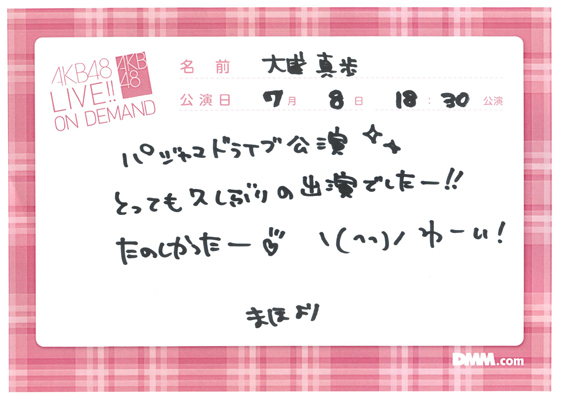 AKB48
LIVE!!
ON DEMAND
AKB
48
名前 大盛真歩
公演日 7月 8日 18:30公演
パジャマドライブ公演
とっても久しぶりの出演でしたー!!
たのしかったー♡ \(^^)/ わーい!
まほより
DMM.com